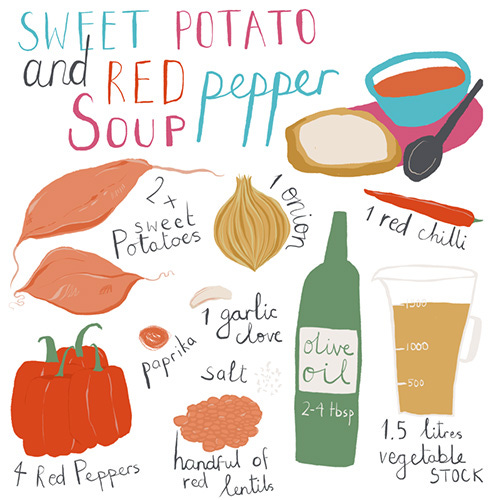 SWEET POTATO
and RED pepper
SOUP
2+
sweet
Potatoes
1 onion
1 red chilli
1 garlic
clove
paprika
salt
olive
oil
2-4 tbsp
1500
1000
500
4 Red Peppers
handful of
red lentils
1.5 litres
vegetable
STOCK